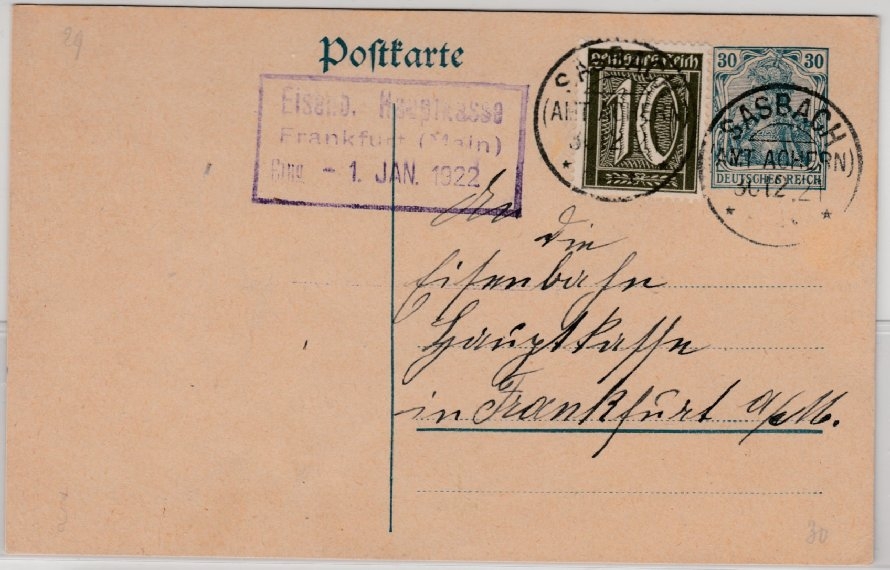 29
Postkarte
Eisenb. - Hauptkasse
Frankfurt (Main)
Eing. - 1. JAN. 1922
Deutsches Reich
10
SASBACH
(AMT ACHERN)
30 30
DEUTSCHES REICH
SASBACH
(AMT ACHERN)
30.12.21
An
die
Eisenbahn
Hauptkasse
in Frankfurt a/M.
30